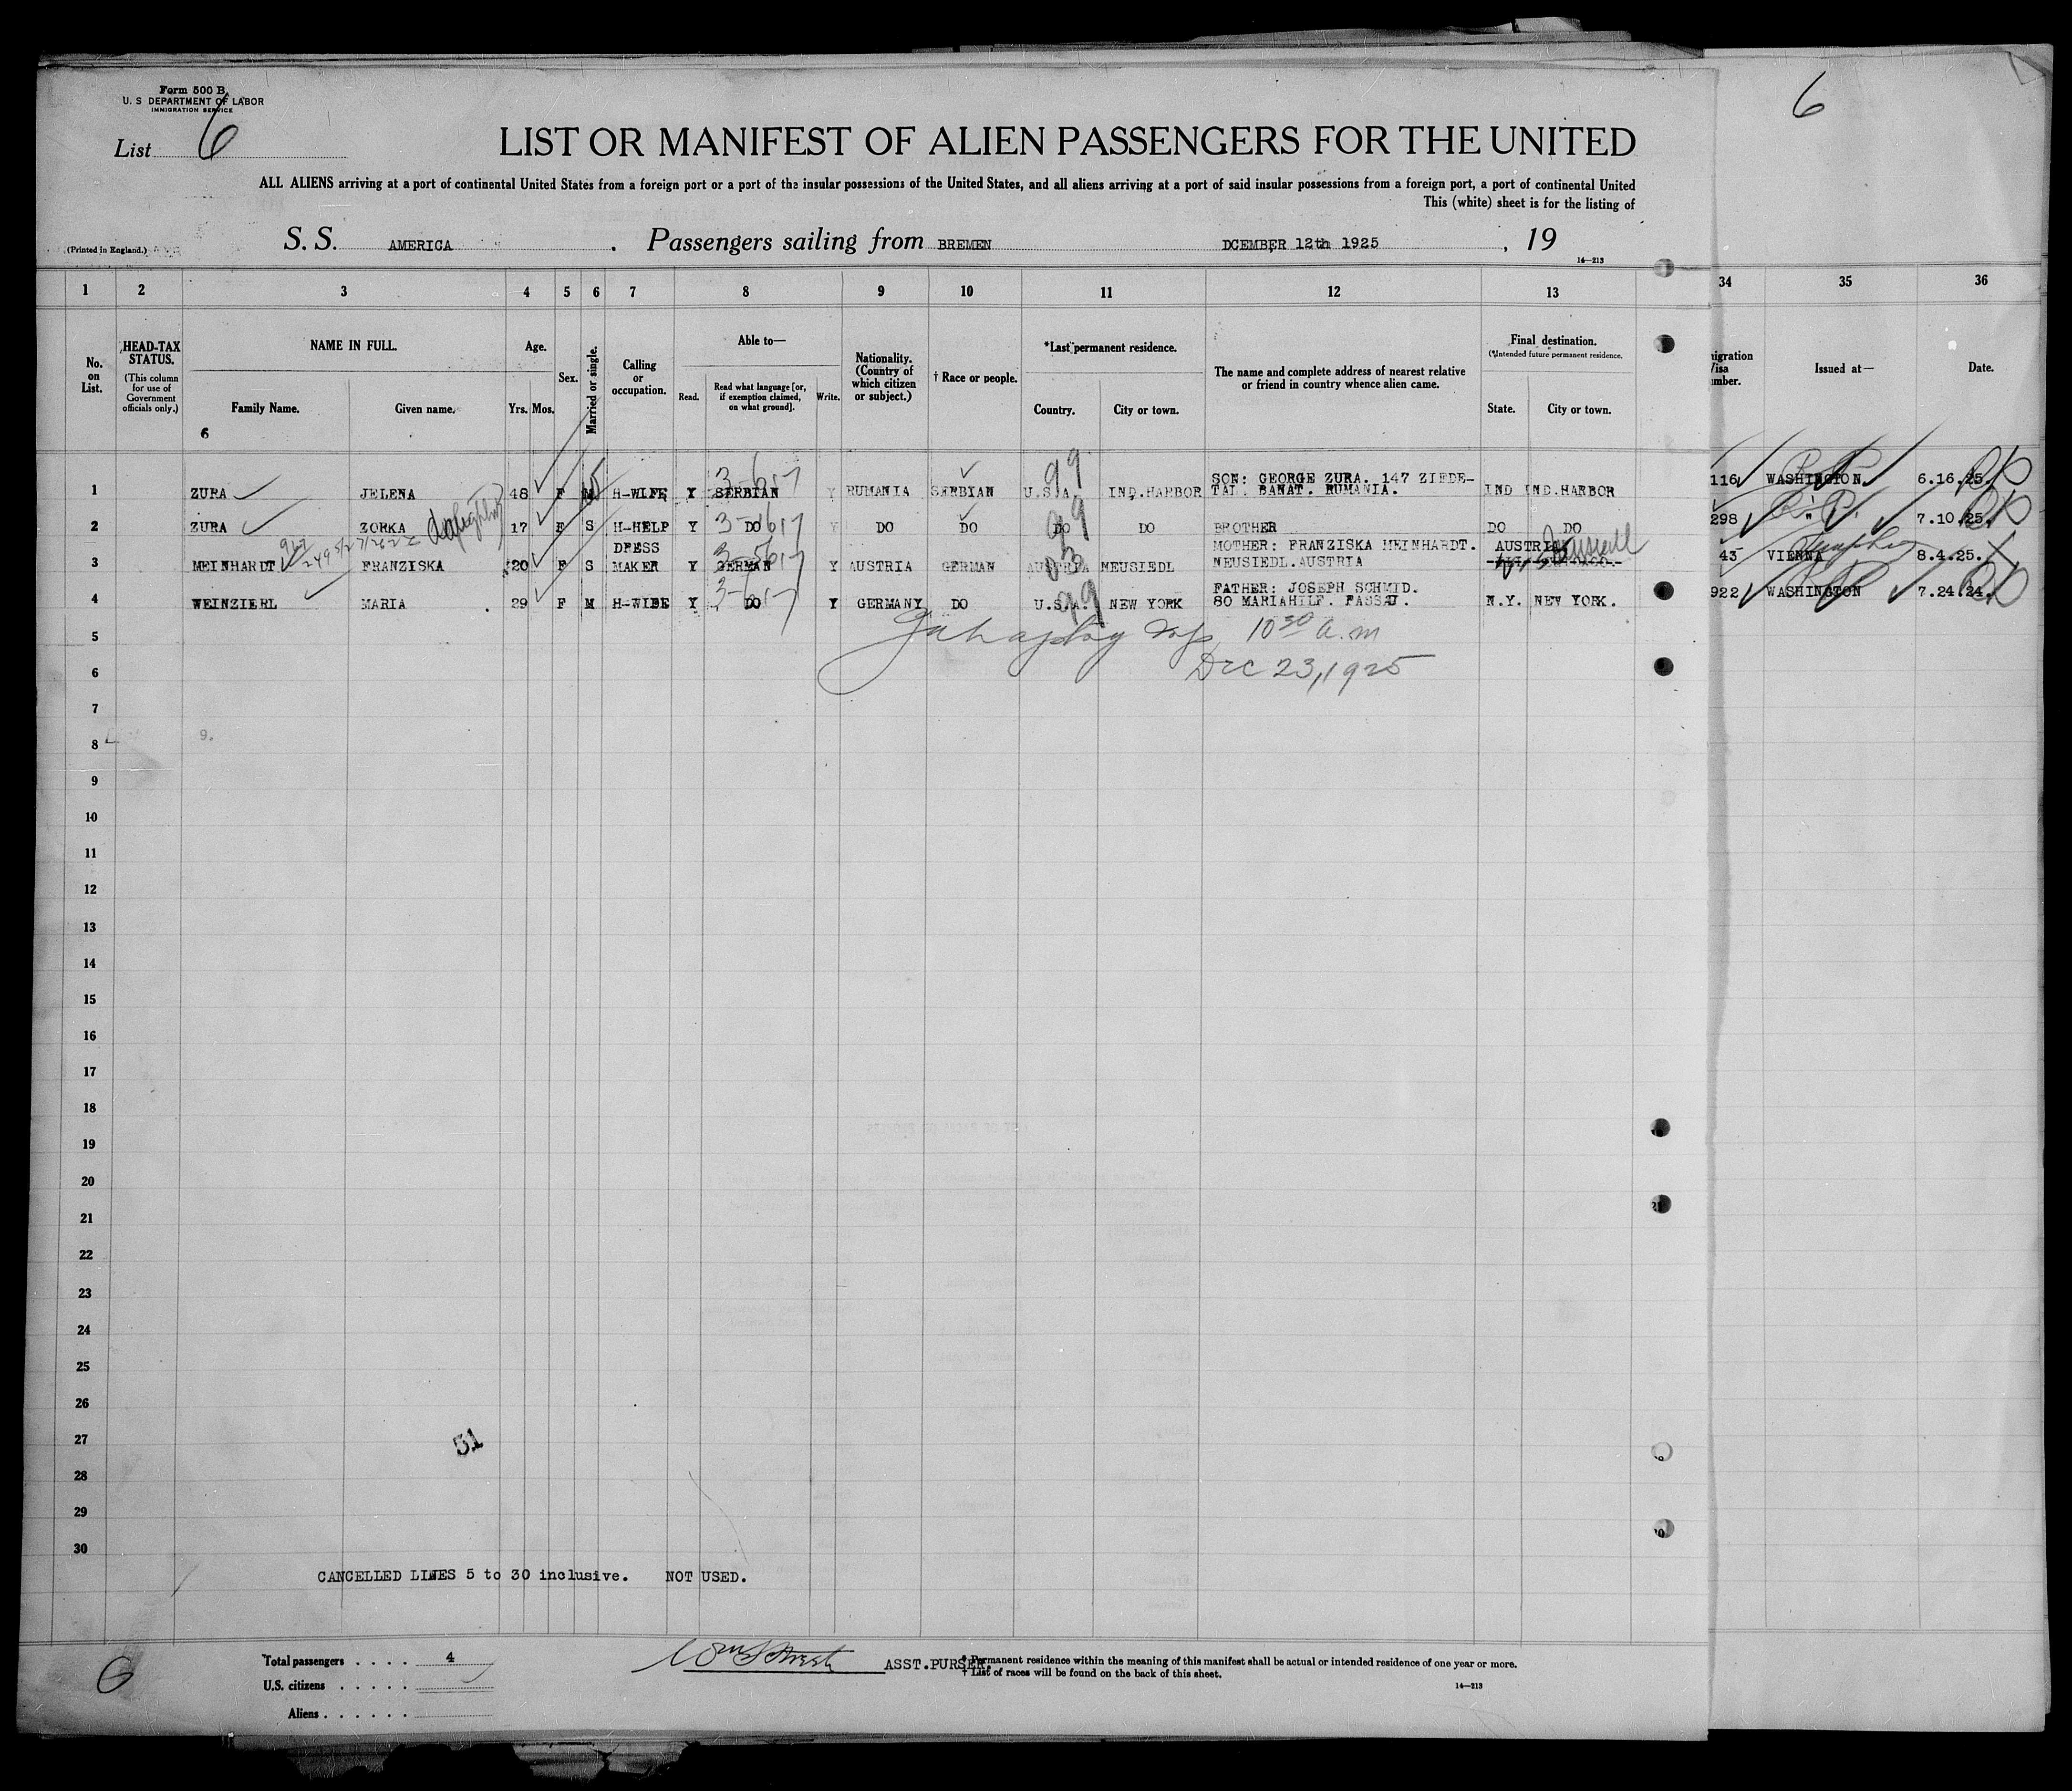 Form 500 B
U. S DEPARTMENT OF LABOR
IMMIGRATION SERVICE
List 6
LIST OR MANIFEST OF ALIEN PASSENGERS FOR THE UNITED
6
ALL ALIENS arriving at a port of continental United States from a foreign port or a port of the insular possessions of the United States, and all aliens arriving at a port of said insular possessions from a foreign port, a port of continental United
This (white) sheet is for the listing of
(Printed in England.) S. S. AMERICA . Passengers sailing from BREMEN DCEMBER 12th 1925 , 19
14—213
1 2 3 4 5 6 7 8 9 10 11 12 13 34 35 36
No. on List.
HEAD-TAX STATUS.
(This column for use of Government officials only.)
NAME IN FULL.
Family Name. Given name.
6
Age.
Yrs. Mos.
Sex.
Married or single.
Calling or occupation.
Able to—
Read. Read what language [or, if exemption claimed, on what ground]. Write.
Nationality. (Country of which citizen or subject.)
† Race or people.
*Last permanent residence.
Country. City or town.
The name and complete address of nearest relative or friend in country whence alien came.
Final destination.
(*Intended future permanent residence.
State. City or town.
Issued at— Date.
SON: GEORGE ZURA. 147 ZIEDE-
1 ZURA JELENA 48 F M H-WIFE Y SERBIAN Y RUMANIA SERBIAN U.S.A. IND.HARBOR TAL. BANAT. RUMANIA. IND IND.HARBOR 116 WASHINGTON. 6.16.25.
99
2 ZURA ZORKA daughter 17 F S H-HELP Y DO Y DO DO DO DO BROTHER DO DO 298 " 7.10.25.
99
DRESS MOTHER: FRANZISKA MEINHARDT. AUSTRIA
3 MEINHARDT FRANZISKA 20 F S MAKER Y GERMAN Y AUSTRIA GERMAN AUSTRIA NEUSIEDL NEUSIEDL.AUSTRIA 43 VIENNA 8.4.25.
FATHER: JOSEPH SCHMID.
4 WEINZIERL MARIA 29 F M H-WIDE Y DO Y GERMANY DO U.S.A. NEW YORK 80 MARIAHILF. PASSAU. N.Y. NEW YORK. 922 WASHINGTON 7.24.24.
99
5
10 30 a.m
6
Dec 23, 1925
7
8
9.
9
10
11
12
13
14
15
16
17
18
19
20
21
22
23
24
25
26
27
51
28
29
30
CANCELLED LINES 5 to 30 inclusive. NOT USED.
Total passengers . . . . 4
U.S. citizens . . . . .
Aliens . . . . . .
6
ASST.PURSER.
* Permanent residence within the meaning of this manifest shall be actual or intended residence of one year or more.
† List of races will be found on the back of this sheet.
14—213